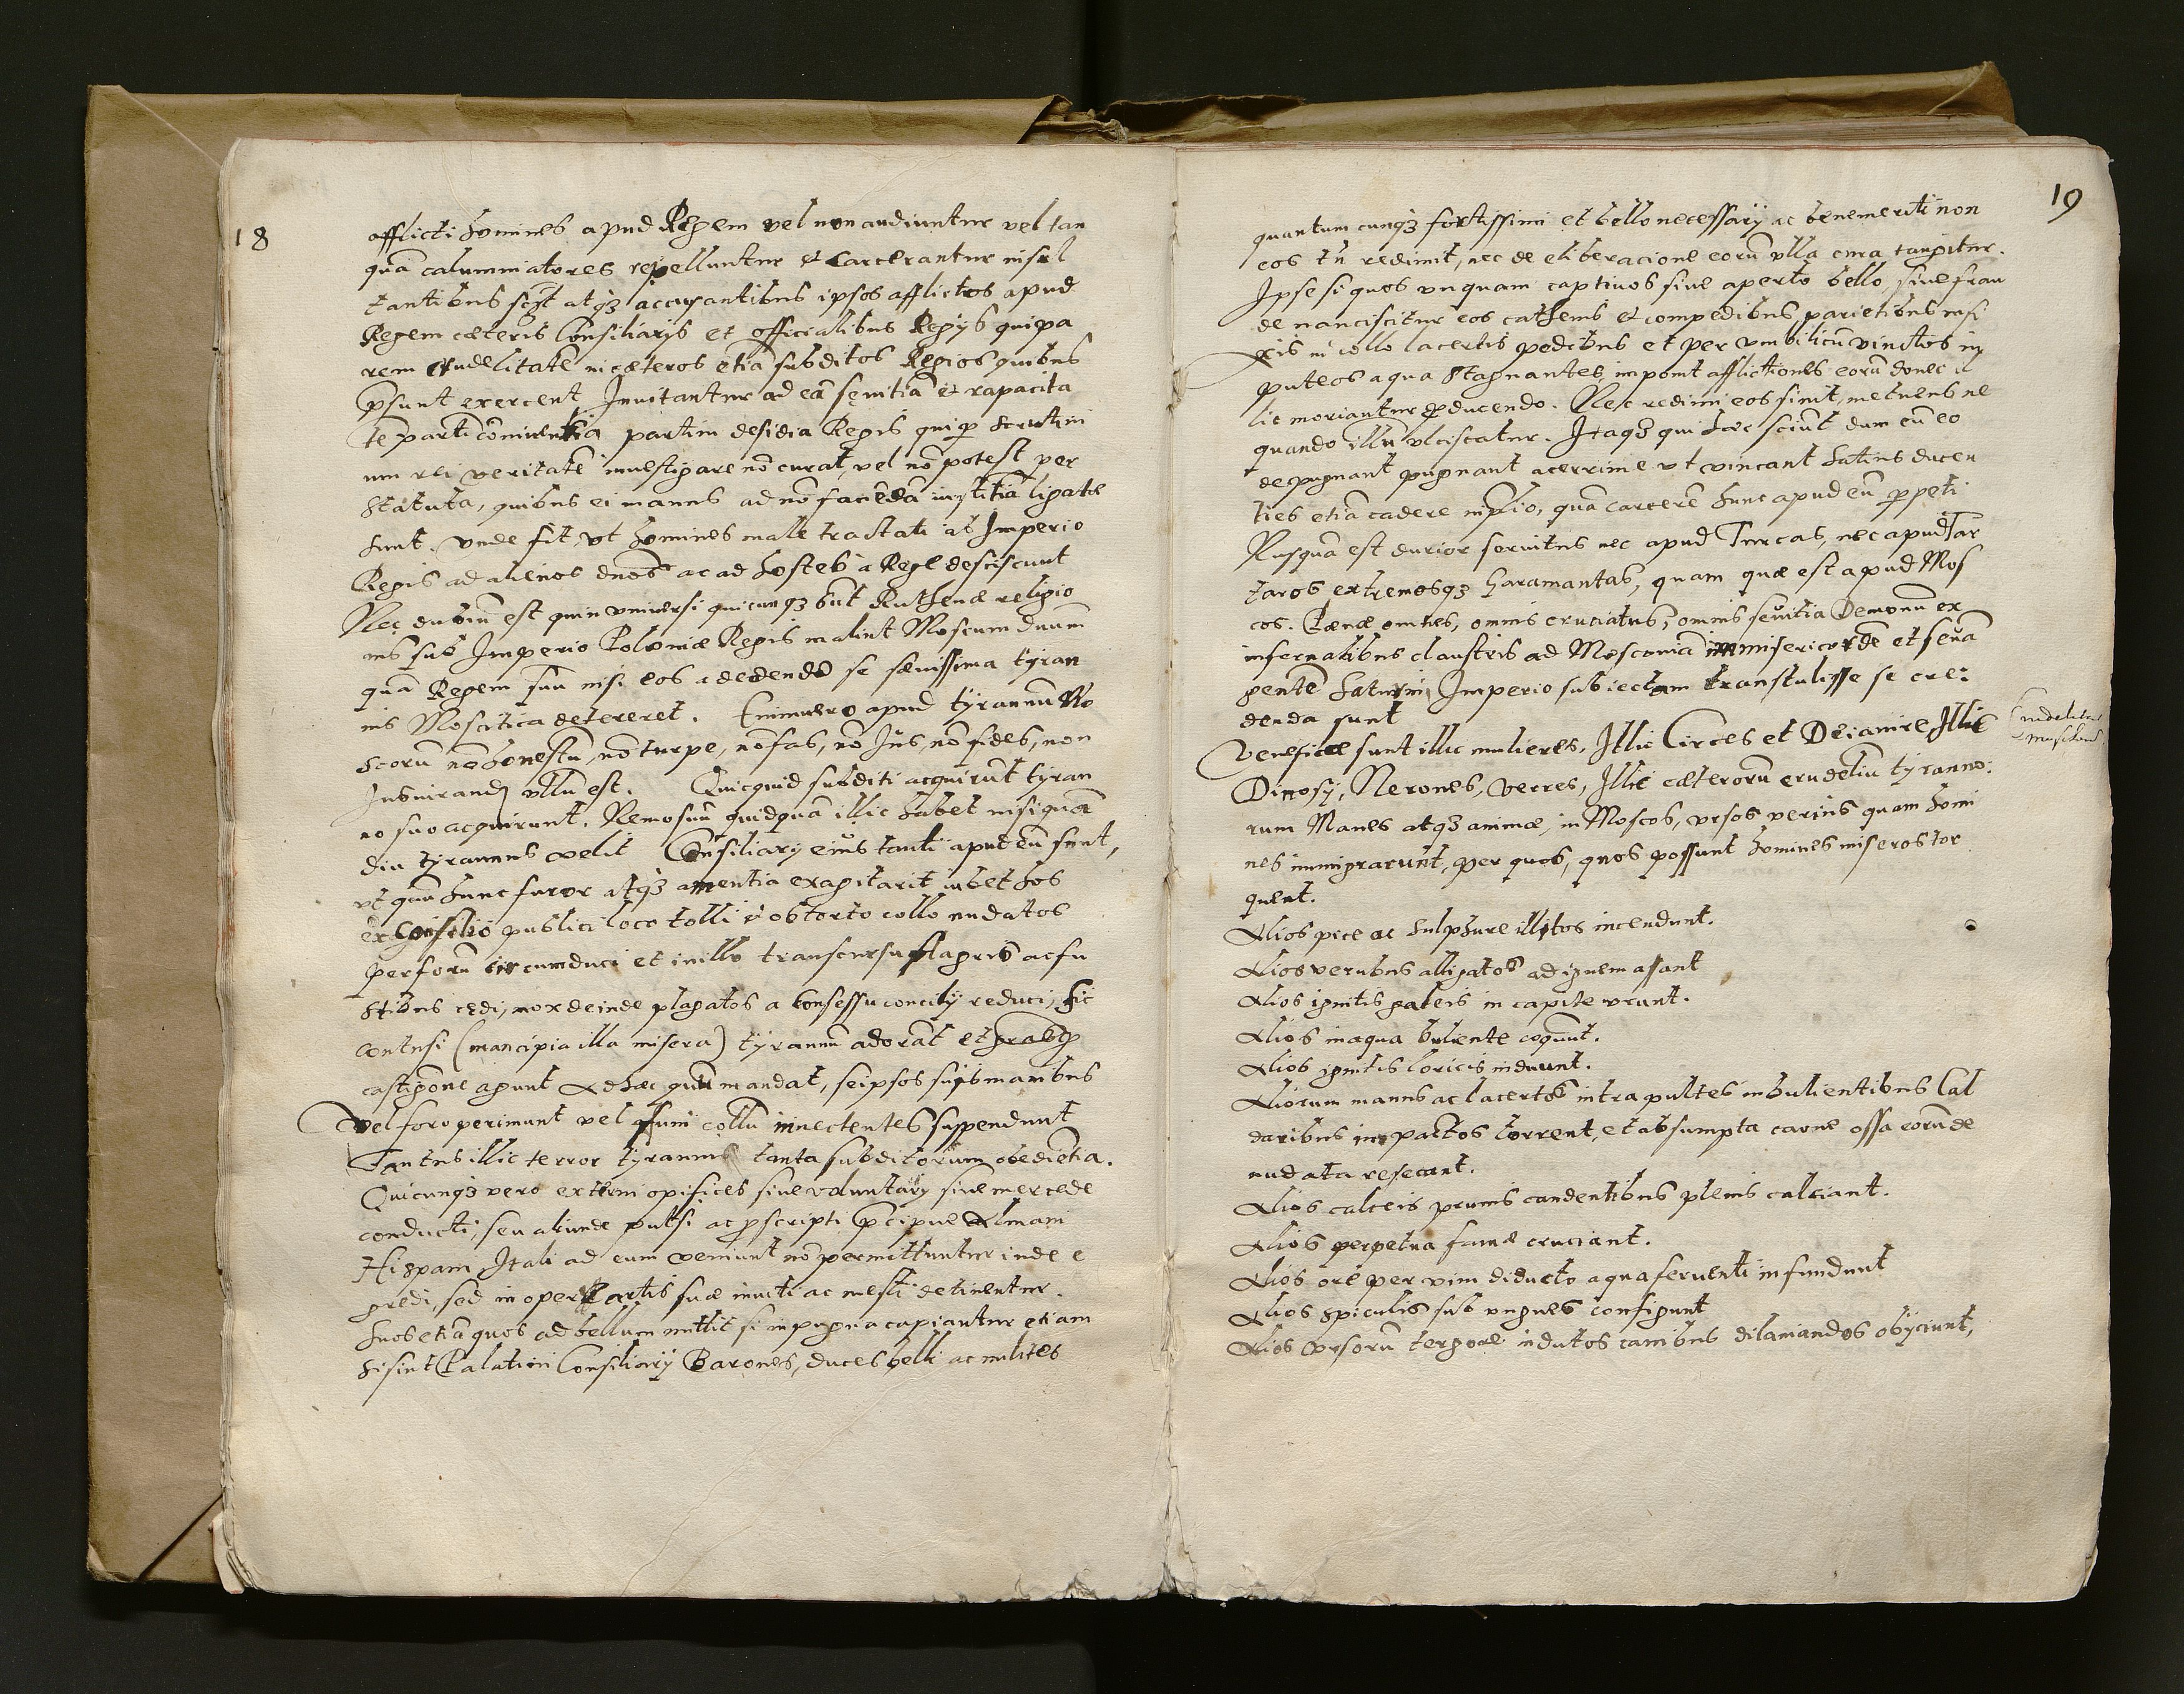 18
afflicti homines apud Regem vel non audiuntur vel tan
quã calumniatores repelluntur et carcerantur insul
tantibus scz̃ atqz accusantibus ipsos afflictos apud
Regem cæteris Consiliarijs et officialibus Regijs qui pa
rem crudelitatẽ in cæteros etiã subditos Regios quibus
p̃sunt exercent Inuitantur ad eã sęuitiã et rapacita
tẽ parti cõniuentia partim desidia Regis qui scrutini
um rei veritatẽ inuestigare nõ curat, vel nõ potest per
statuta, quibus ei manus ad nõ faciẽdã iustitiã ligatæ
sunt. Vnde fit, vt homines male tractati ab Imperio
Regis ad alienos dños ac ad hostes à Rege desciscunt
Nec dubiũ est quin vniuersi quicunqz sũt Ruthenæ religio
nis sub Imperio Poloniæ Regis malint Moscum dñum
quã Regem suũ nisi eos a dedendo se sæuissima tyran
nis Moscitica detereret. Enimuero apud tyrannũ Mo
scorũ nõ honestũ, nõ turpe, nõ fas, nõ Jus, nõ fides, non
Jusiurand vllũ est. Quicquid subditi acquirũt tyran
no suo acquirunt. Nemo suũ quidquã illic habet nisi quã
diu tyrannus velit Consiliarij eius tanti apud eũ sunt,
vt quũ hunc furor atqz amentia exagitarit iubet hos
ex Consilio publici loco tolli et obtorto collo nudatos
per forũ circumduci et in illo transcursu flagris ac fu
stibus cędi, mox deinde plagatos a consessu concilij reduci, sic
contusi (mancipia illa misera) tyrannũ adorãt et gratias p
castigõne agunt Ad hæc quũ mandat, seipsos suis manibus
vel foro perimunt vel funi collũ innectentes suspendunt
Tantus illic terror tyrannis tanta subditorum obediẽtia.
Quicunqz vero externi opifices siue voluntarij siue mercede
conducti, seu aliunde pulsi ac pscripti p̃cipue Almani
Hispani Itali ad eum veniunt nõ permittuntur inde e
gredi, sed in opere artis suæ inuiti ac mesti detinentur.
Suos etiã quos ad bellum mittit si in pugna capiantur etiam
si sint Palatini Consiliarij Barones, duces belli ac milites
19
quantumcunqz fortissimi et bello necessarij ac benemeriti non
eos tñ redimit, nec de eliberacione eorũ vlla cura tangitur.
Ipse si quos vnquam captiuos siue aperto bello, siue frau
de nanciscitur eos cathenis et compedibus parietibus infi
xis in collo lacertis pedibus et per vmbilicũ vinctos in
puteos aqua stagnantes, imponit afflictiones eorũ donec il
lic moriantur pducendo. Nec redimi eos sinit, metuens ne
quando illũ vlciscatur. Itaqz qui hæc sciũt dum cũ eo
depugnant pugnant acerrime vt vincant satius ducen
ties etiã cadere in plio, quã carcerẽ hunc apud eũ ppeti
Nusquã est durior seruitus nec apud Turcas, nec apud Tar
taros, extremosqz Garamantas, quam quæ est apud Mos
cos. Pænæ omnes, omnis cruciatus, omnis sęuitia Demonũ ex
infernalibus claustris ad Moscouiã immisericordẽ et seuã
gentẽ Saturni Imperio subiectam transtulisse se cre:
denda sunt
Veneficæ sunt illic mulieres, Illic Circes et Deianire Illic
Dinosij, Nerones, Verres, Illic cæterorũ crudeliũ tyranno:
rum Manes atqz animæ, in Moscos, vrsos verius quam homi
nes immigrarunt, per quos, quos possunt homines miseros tor
quent.
Alios pice ac sulphure illitos incendunt.
Alios verubus alligatos ad ignem assant
Alios ignitis galeis in capite vrunt.
Alios in aqua buliente coquunt.
Alios ignitis loricis induunt.
Aliorum manus ac lacertos intra pultes in bulientibus Cal
daribus impactos torrent, et absumpta carne ossa eorũ de
nudata resecant.
Alios calceis prunis candentibus plenis calciant.
Alios perpetua famæ cruciant.
Alios ore per vim diducto aqua feruenti infundunt
Alios spiculis sub vngues configunt
Alios vrsorũ tergore indutos canibus dilaniandos obijciunt,